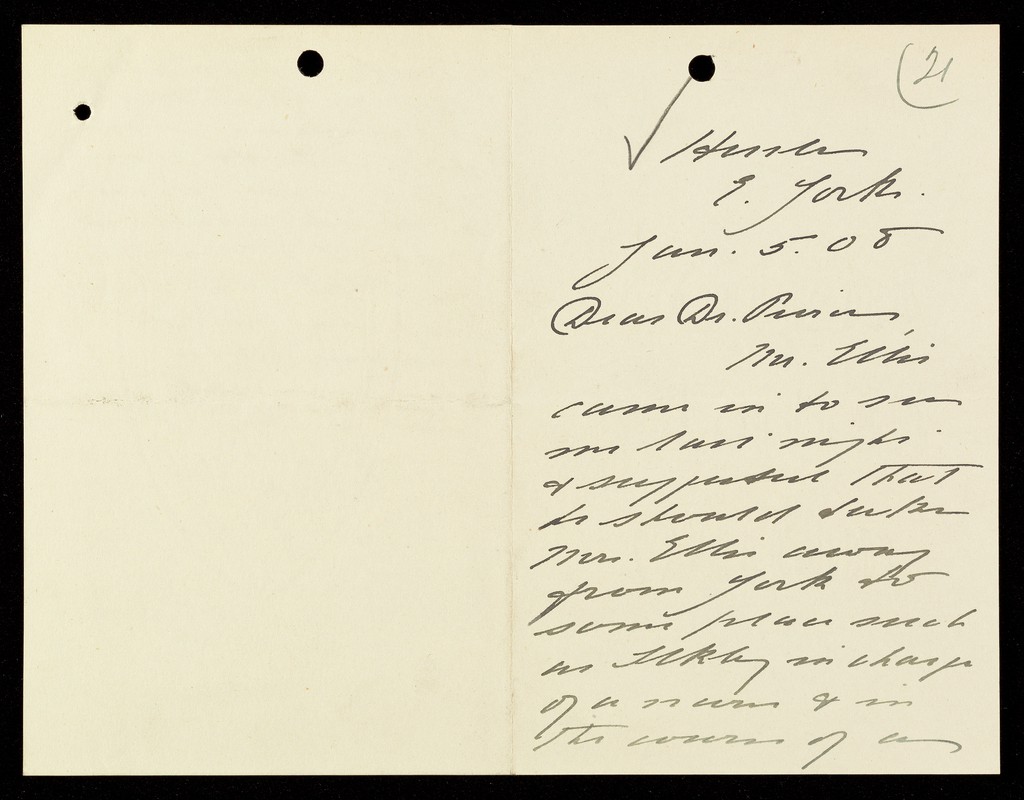 21
Hessle
E. Yorks.
Jan. 5. 08
Dear Dr. Pierce,
Mr. Ellis
came in to see
me last night
& suggested that
he should take
Mrs. Ellis away
from York to
some place such
as Ilkley in charge
of a nurse & in
the course of a